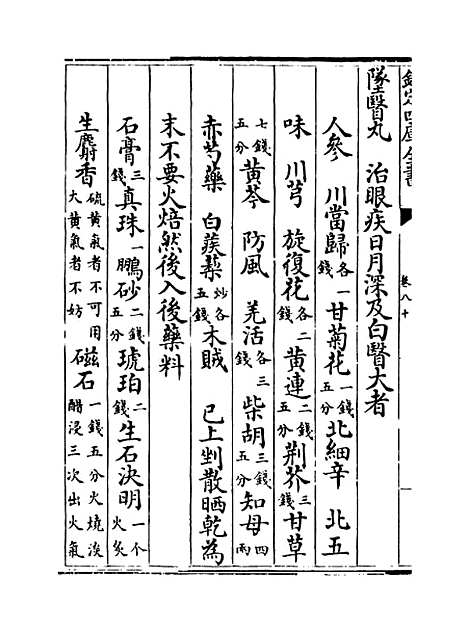 欽定四庫全書
卷八十
墜翳丸 治眼疾日月深及白翳大者
人參 川當歸各一錢 甘菊花一錢五分 北細辛 北五
味 川芎 旋復花各二錢 黄連二錢五分 荆芥三錢 甘草
七錢五分 黄芩 防風 羌活各三錢 柴胡三錢五分 知母四兩
赤芍藥 白蒺䔧炒各五錢 木賊 已上剉散晒乾為
末不要火焙然後入後藥料
石膏三錢 真珠一錢 鵬砂二錢五分 琥珀二錢 生石决明一个火炙
生麝香硫黄氣者不可用大黄氣者不妨 磁石一錢五分火燒淡醋浸三次出火氣